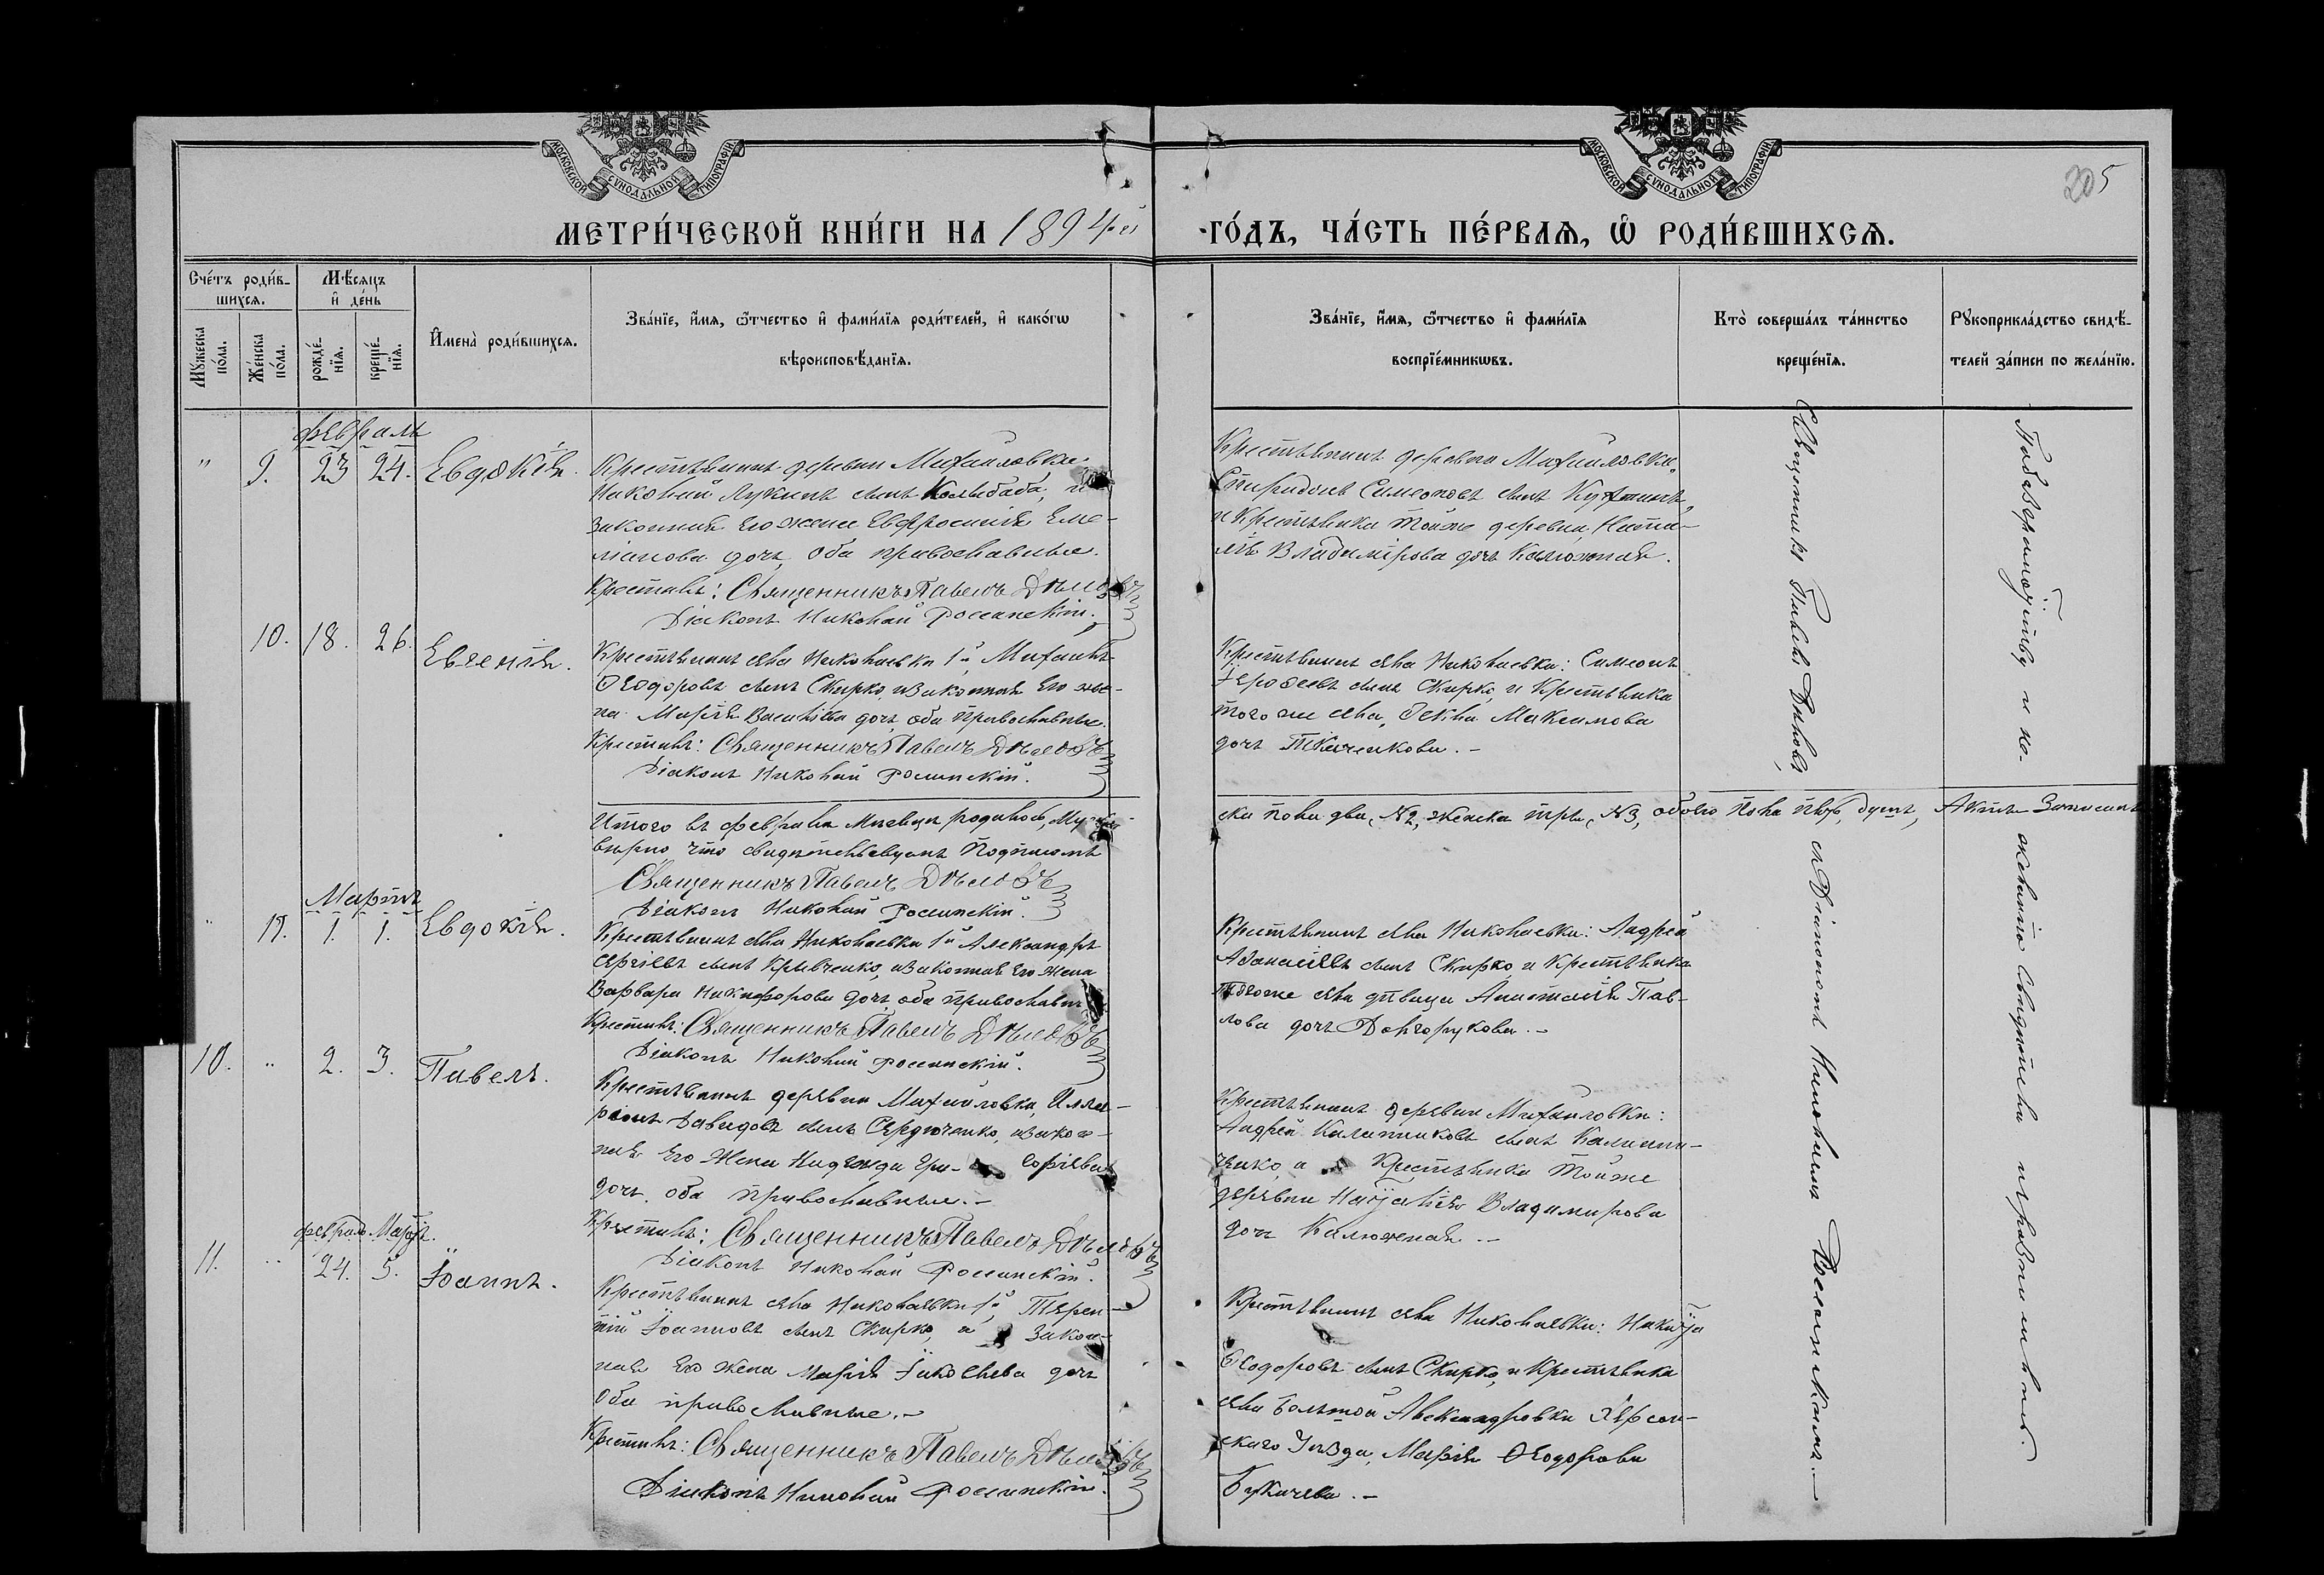 МОСКОВСКОЙ СΥНОДАЛЬНОЙ ТИПОГРАФІИ
МОСКОВСКОЙ СΥНОДАЛЬНОЙ ТИПОГРАФІИ
205
МЕТРИ́ЧЕСКОЙ КНИ́ГИ НА 1894 й ГО́ДЪ, ЧА́СТЬ ПЕ́РВАѦ, Ѡ РОДИ́ВШИХСѦ.
Сче́тъ роди́в-
шихсѧ.
Мѣ́сѧцъ
и҆ де́нь
Мꙋ́жеска
по́ла.
Же́нска
по́ла.
рожде́-
нїѧ.
креще́-
нїѧ.
И҆мена̀ роди́вшихсѧ.
Зва́нїе, и҆́мѧ, ѻ҆́тчество и҆ фами́лїѧ роди́телей, и҆ како́гѡ
вѣроисповѣ́данїѧ.
Зва́нїе, и҆́мѧ, ѻ҆́тчество и҆ фами́лїѧ
воспрїе́мникѡвъ.
Кто̀ соверша́лъ та́инство
креще́нїѧ.
Рꙋкоприкла́дство свидѣ́-
телей за́писи по жела́нїю.
февраль
" 9. 23 24. Евдокія.
Крестьянинъ деревни Михайловки
Николай Лукинъ сынъ Колыбаба, и
законная его жена Евфросинія Еме-
ліанова дочь, оба православные.
Крестилъ: Священникъ Павелъ
Діаконъ Николай Россинскій.
Крестьянинъ деревни Михайловки
Спиридонъ Симеоновъ сынъ
и Крестьянка тойже деревни, Ната-
лія Владимірова дочь Калюжная.
10. 18. 26. Евгенія.
Крестьянинъ села Николаевки 1й Михаилъ
Ѳеодоровъ сынъ Скирко, и законная его же-
на Марія Васильева дочь, оба православные.
Крестилъ: Священникъ Павелъ
Діаконъ Николай Россинскій.
Крестьянинъ села Николаевки: Симеонъ
Іероѳеевъ сынъ Скирко, и Крестьянка
того же села, Ѳекла Максимова
дочь Ткаченкова.
Итого въ феврале месяце родилось, Муже-
ска пола два, №2, женска три, №3, обоего пола пять душъ, Актъ Записанъ
верно что свидетельствуемъ подписомъ
Священникъ Павелъ
Діаконъ Николай Россинскій.
Мартъ
" 11. 1. 1. Евдокія.
Крестьянинъ села Николаевки 1й Александръ
Сергіевъ сынъ Кривченко, и законная его жена
Варвара Никифорова дочь, оба православные
Крестилъ: Священникъ Павелъ
Діаконъ Николай Россинскій.
Крестьянинъ села Николаевки: Андрей
Аѳанасіевъ сынъ Скирко, и Крестьянка
тогоже села девица Анастасія Пав-
лова дочь Долгорукова.
10. " 2. 3. Павелъ.
Крестьянинъ деревни Михайловки, Илла-
ріонъ Давидовъ сынъ Сердюченко, и закон-
ная его жена Надежда Гри- горіева
дочь, оба православные.
Крестилъ: Священникъ Павелъ
Діаконъ Николай Россинскій.
Крестьянинъ деревни Михайловки:
Андрей Калинниковъ сынъ Калинни-
ченко, и Крестьянка тойже
деревни Наталія Владимирова
дочь Калюжная.
феврал. Мартъ.
11. " 24. 5. Іоаннъ.
Крестьянинъ села Николаевки 1й, Терен-
тій Іоанновъ сынъ Скирко, и закон-
ная его жена Марія Іаковлева дочь
оба православные.
Крестилъ: Священникъ Павелъ
Діаконъ Николай Россинскій.
Крестьянинъ села Николаевки: Никита
Ѳеодоровъ сынъ Скирко, и Крестьянка
села Большой Александровки Херсон-
скаго Уезда, Марія Ѳеодорова
Священникъ Павелъ
съ Діакономъ Николаемъ Россинскимъ.
По безграмотству и не-
желанію свидетели